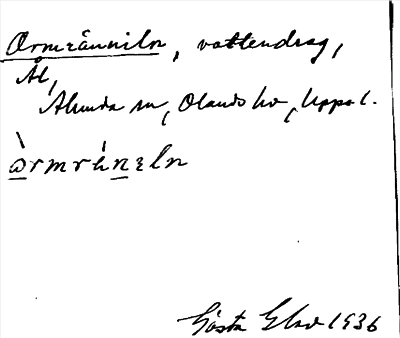 Ormränniln, vattendrag,
Ål,
Alunda sn, Olands hd, Upps. l.
òrmrǻnɛln
Gösta Elov 1936